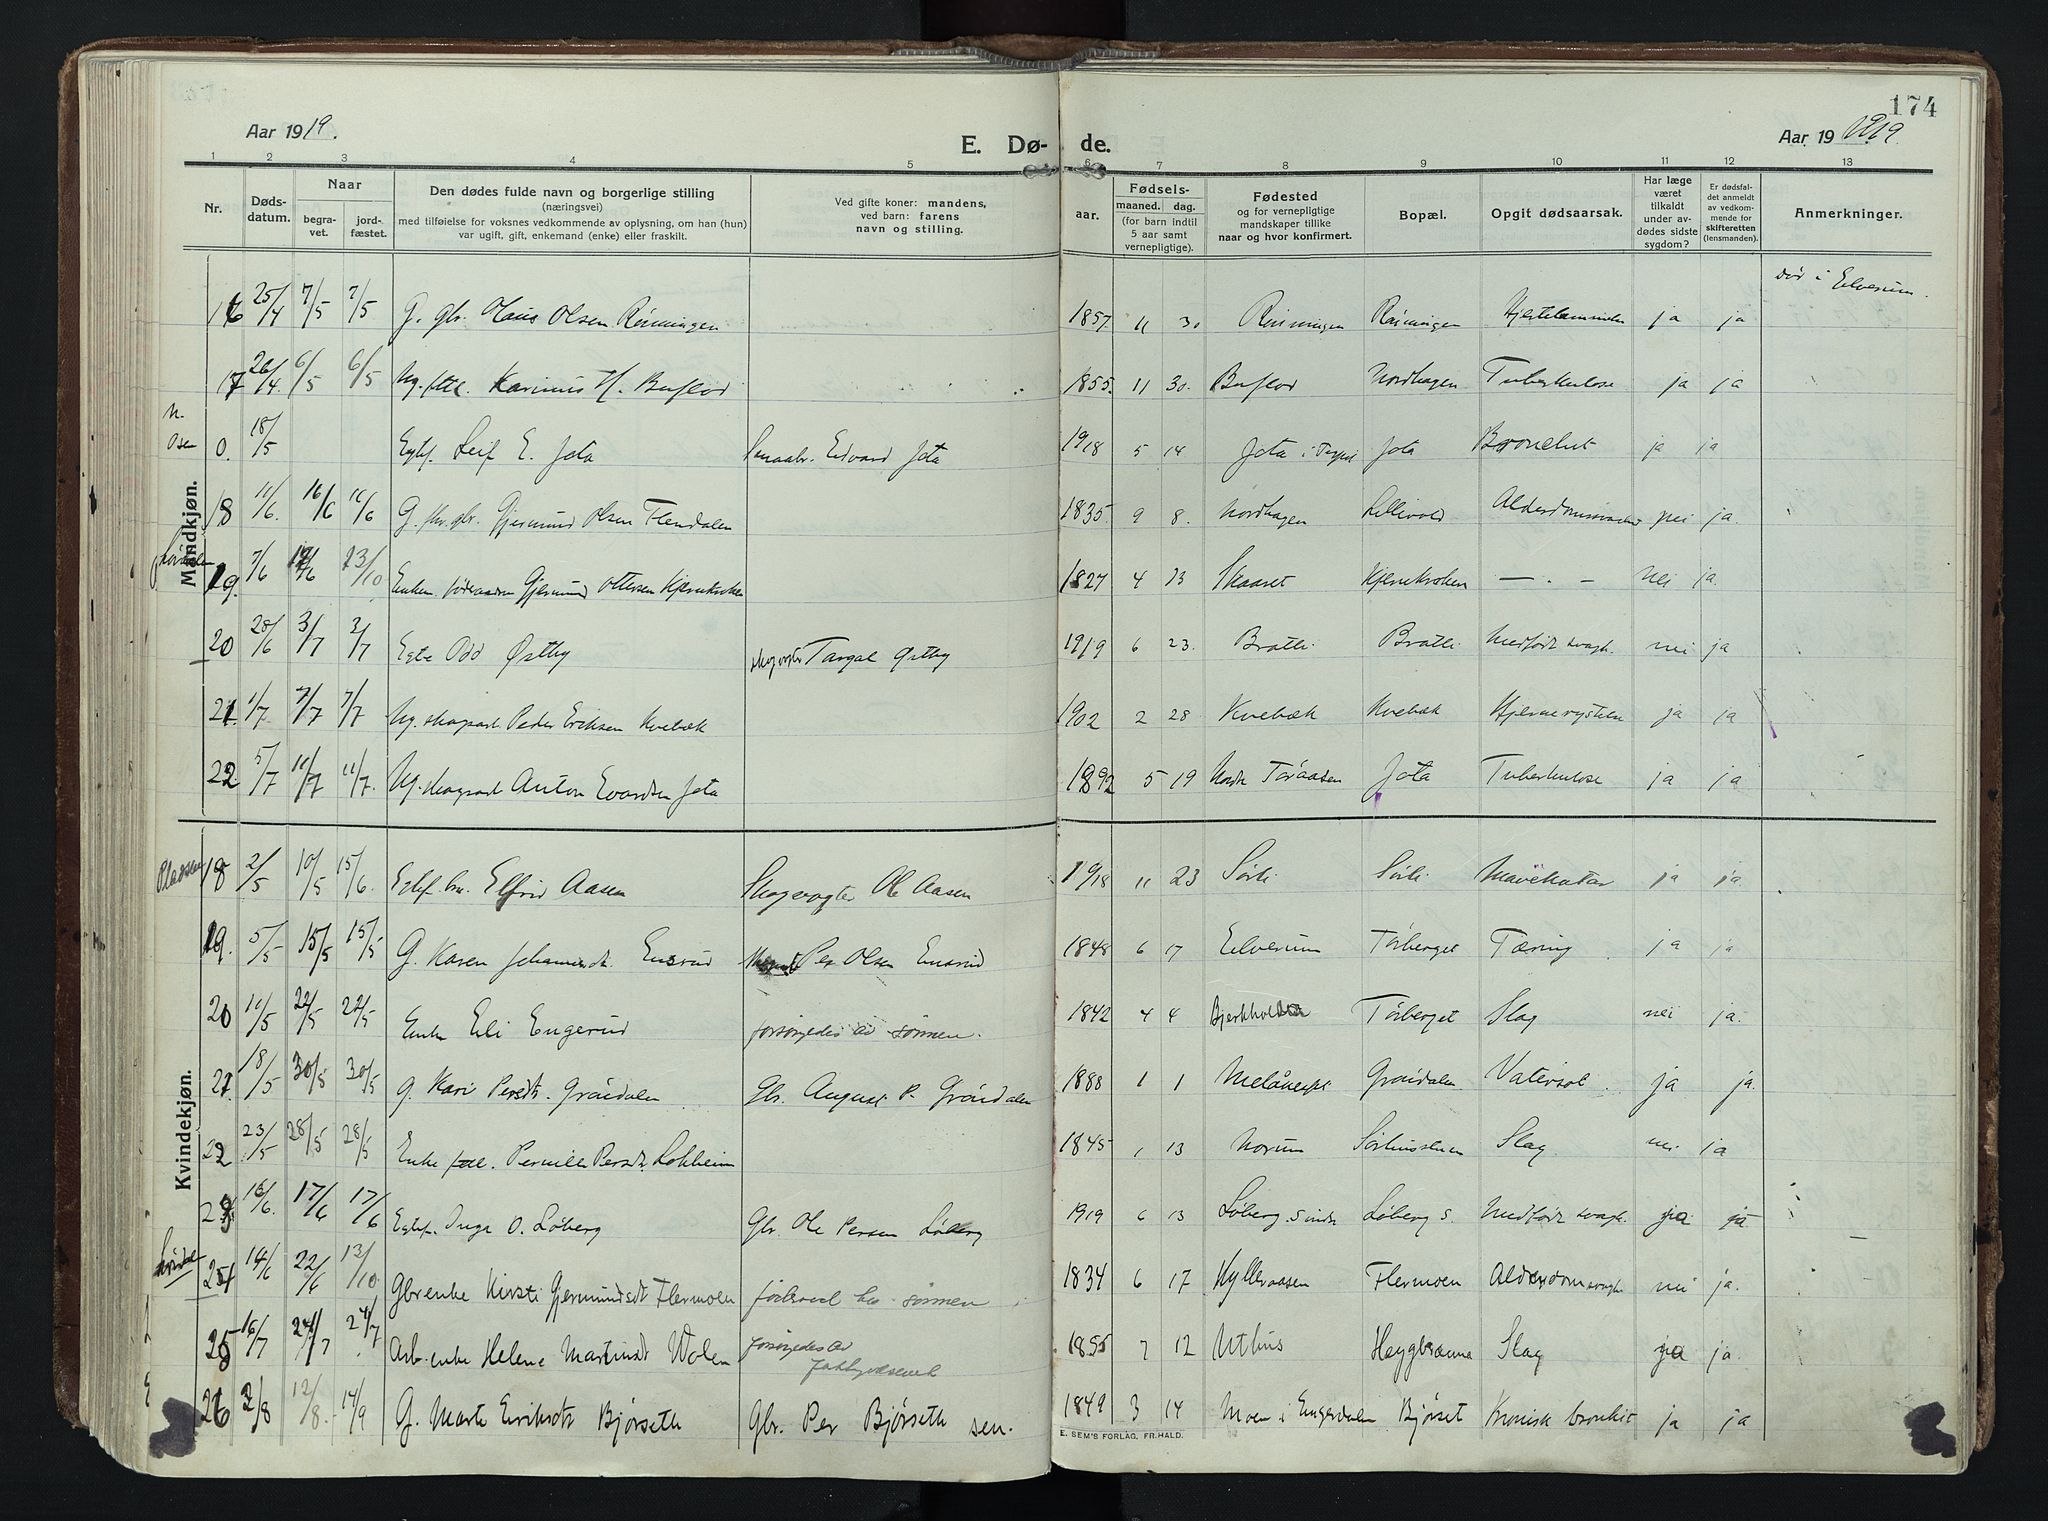 174
Aar 1919.
E. Dø- de.
Aar 19 1919.
1 2 3 4 5 6 7 8 9 10 11 12 13
Nr.
Døds-
datum.
Naar
begra-
vet.
jord-
fæstet.
Den dødes fulde navn og borgerlige stilling
(næringsvei)
med tilføielse for voksnes vedkommende av oplysning, om han (hun)
var ugift, gift, enkemand (enke) eller fraskilt.
Ved gifte koner: mandens,
ved barn: farens
navn og stilling.
aar.
Fødsels-
maaned. dag.
(for barn indtil
5 aar samt
vernepligtige).
Fødested
og for vernepligtige
mandskaper tillike
naar og hvor konfirmert.
Bopæl.
Opgit dødsaarsak.
Har læge
været
tilkaldt
under av-
dødes sidste
sygdom?
Er dødsfal-
det anmeldt
av vedkom-
mende for
skifteretten
(lensmanden).
Anmerkninger.
Mandkjøn.
død i Elverum.
16 25/4 7/5 7/5 G. gbr. Olaus Olsen Rønningen 1857 11 30 Rønningen Rønningen ja ja
17 26/4 6/5 6/5 Karinus Buflød 1855 11 30. Buflød Nordhagen Tuberkulose ja ja
N. Osen
0. 18/5 Egtef. Leif E. Jota Smaabr. Edvard Jota 1918 5 14 Jota Jota ja ja
18 11/6 16/6 16/6 G. gbr. Gjermund Olsen Flendalen 1835 9 8. Nordhagen Lillevold nei ja.
19. 7/6 12/6 13/10 Enkem. Gjermund Ottersen Kjernkroken 1827 4 13 Skaaret Kjernkroken — " — nei ja
20 28/6 3/7 3/7 Egte Odd Østby Targal Østby 1919 6 23. Bratli Bratli Medfødt svagh. nei ja
21. 1/7 7/7 7/7 Ug. skogsarb. Peder Eriksen Kvebæk 1902 2 28 Kvebæk Kvebæk Hjernerystelse ja ja
22 5/7 11/7 11/7. Ug. skogsarb. Anton Evardsen Jota 1892 5 19 Tøraasen Jota Tuberkulose ja ja
Kvindekjøn.
Plassen
18 2/5 10/5 15/6. Egtef. Elfrid Aasen Skogvogter Ole Aasen 1918 11 23 Sørli Sørli Mavekatar ja ja.
19. 5/5 15/5 15/5 G. Karen Johannesdt. Ensrud Per Olsen Ensrud 1848 6 17 Elverum Tørberget Tæring ja ja
20 11/5 22/5 22/5 Enke Eli Engerud forsørgedes av sønnen. 1842 4 4 Tørberget Slag nei ja.
21. 18/5 30/5 30/5 G. Kari Persdt. Grøndalen Gbr. August P. Grøndalen 1888 1 1 Grøndalen Vatersot. ja ja.
22 23/5 28/5 28/5 Enke Pernille Persdt. Løkheim 1845 1 13 Norum Slag. nei ja
23 16/6. 17/6 17/6 Egtef. Inga O. Løberg Gbr. Ole Persen Løberg 1919 6 13 Løberg søndre Løberg s. Medfødt svagh. ja ja
24 14/6 22/6 13/10 Gbrenke Kirsti Gjermundsdt. Flermoen føderaad hos sønnen 1834 6 17 Hylleraasen Flermoen Alderdomssvagh. nei ja.
25 16/7 24/7 24/7 Arb. enke Helene Martinsdt. Wolen forsørgedes av fattigvæsenet 1855 7 12 Uthus Slag ja ja.
26 2/8 12/8. 14/9 G. Marte Eriksdt. Bjørseth Gbr. Per Bjørseth sen. 1849 3 14 Moen i Engerdalen Bjørset Kronisk bronkit ja ja
E. SEM'S FORLAG, FR.HALD.